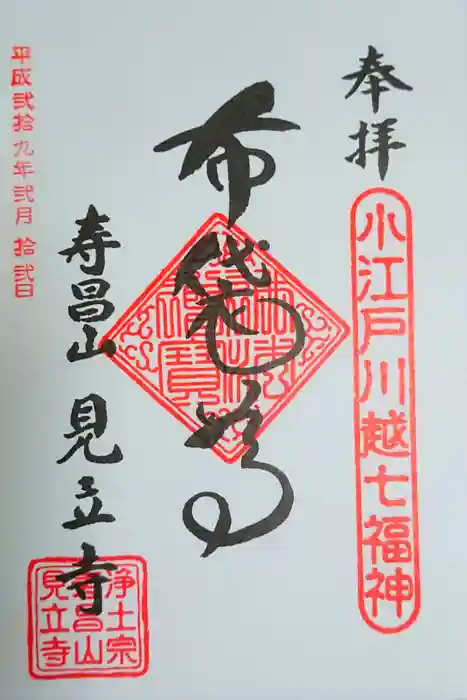 奉拝
小江戸川越七福神
布袋尊
寿昌山 見立寺
浄土宗
寿昌山
見立寺
平成弐拾九年弐月 拾弐日